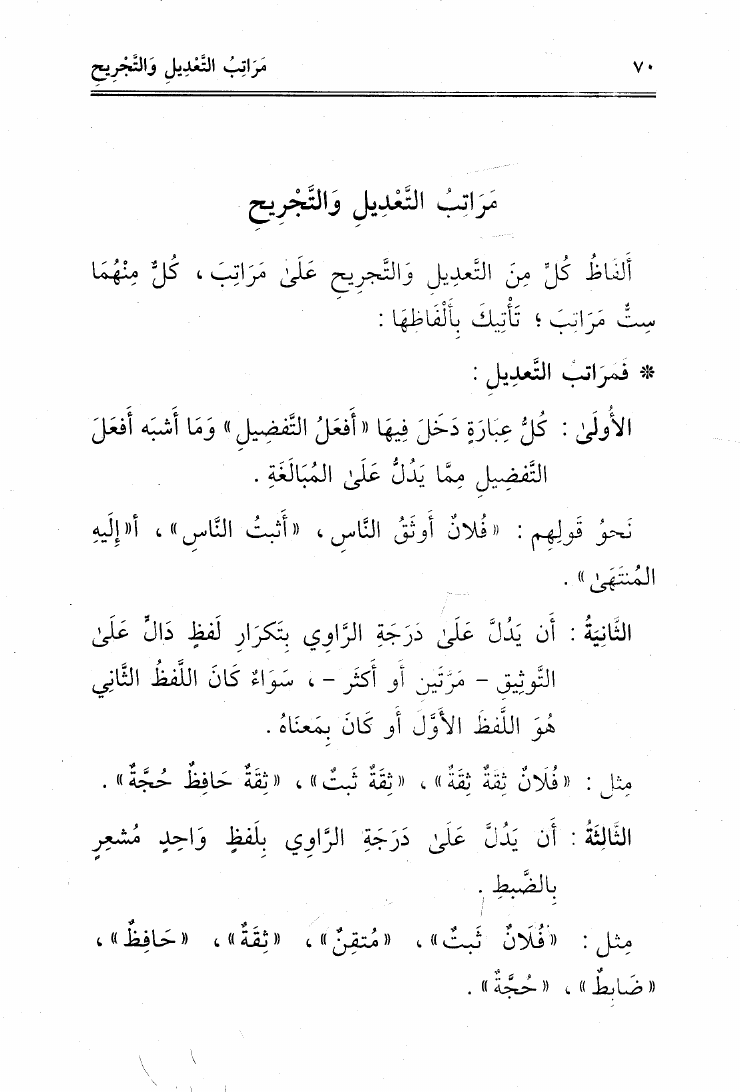 ٧٠ مَرَاتِبُ التَّعْدِيلِ وَالتَّجْرِيحِ
مَرَاتِبُ التَّعْدِيلِ وَالتَّجْرِيحِ
أَلفَاظُ كُلٍّ مِنَ التَّعدِيلِ وَالتَّجرِيحِ عَلَىٰ مَرَاتِبَ ، كُلٌّ مِنْهُمَا
سِتُّ مَرَاتِبَ ؛ تَأْتِيكَ بِأَلْفَاظِهَا :
* فَمَرَاتبُ التَّعدِيلِ :
الأُولَىٰ : كُلُّ عِبَارَةٍ دَخَلَ فِيهَا «أَفعَلُ التَّفضِيلِ» وَمَا أَشبَه أَفعَلَ
التَّفضِيلِ مِمَّا يَدُلُّ عَلَىٰ المُبَالَغَةِ .
نَحوُ قَولِهِم : «فُلانٌ أَوثَقُ النَّاسِ ، «أَثبتُ النَّاسِ» ، أ«إِلَيهِ
المُنتَهَىٰ» .
الثَّانِيَةُ : أَن يَدُلَّ عَلَىٰ دَرَجَةِ الرَّاوِي بِتَكرَارِ لَفظٍ دَالٍّ عَلَىٰ
التَّوثِيقِ - مَرَّتَينِ أَو أَكثَر - ، سَوَاءٌ كَانَ اللَّفظُ الثَّانِي
هُوَ اللَّفظَ الأَوَّلَ أَو كَانَ بِمَعنَاهُ .
مِثل : «فُلَانٌ ثِقَةٌ ثِقَةٌ» ، «ثِقَةٌ ثَبتٌ» ، «ثِقَةٌ حَافِظٌ حُجَّةٌ» .
الثَّالِثَةُ : أَن يَدُلَّ عَلَىٰ دَرَجَةِ الرَّاوِي بِلَفظٍ وَاحِدٍ مُشعِرٍ
بِالضَّبطِ .
مِثل : «فُلَانٌ ثَبتٌ» ، «مُتقِنٌ» ، «ثِقَةٌ» ، «حَافِظٌ» ،
«ضَابِطٌ» ، «حُجَّةٌ» .